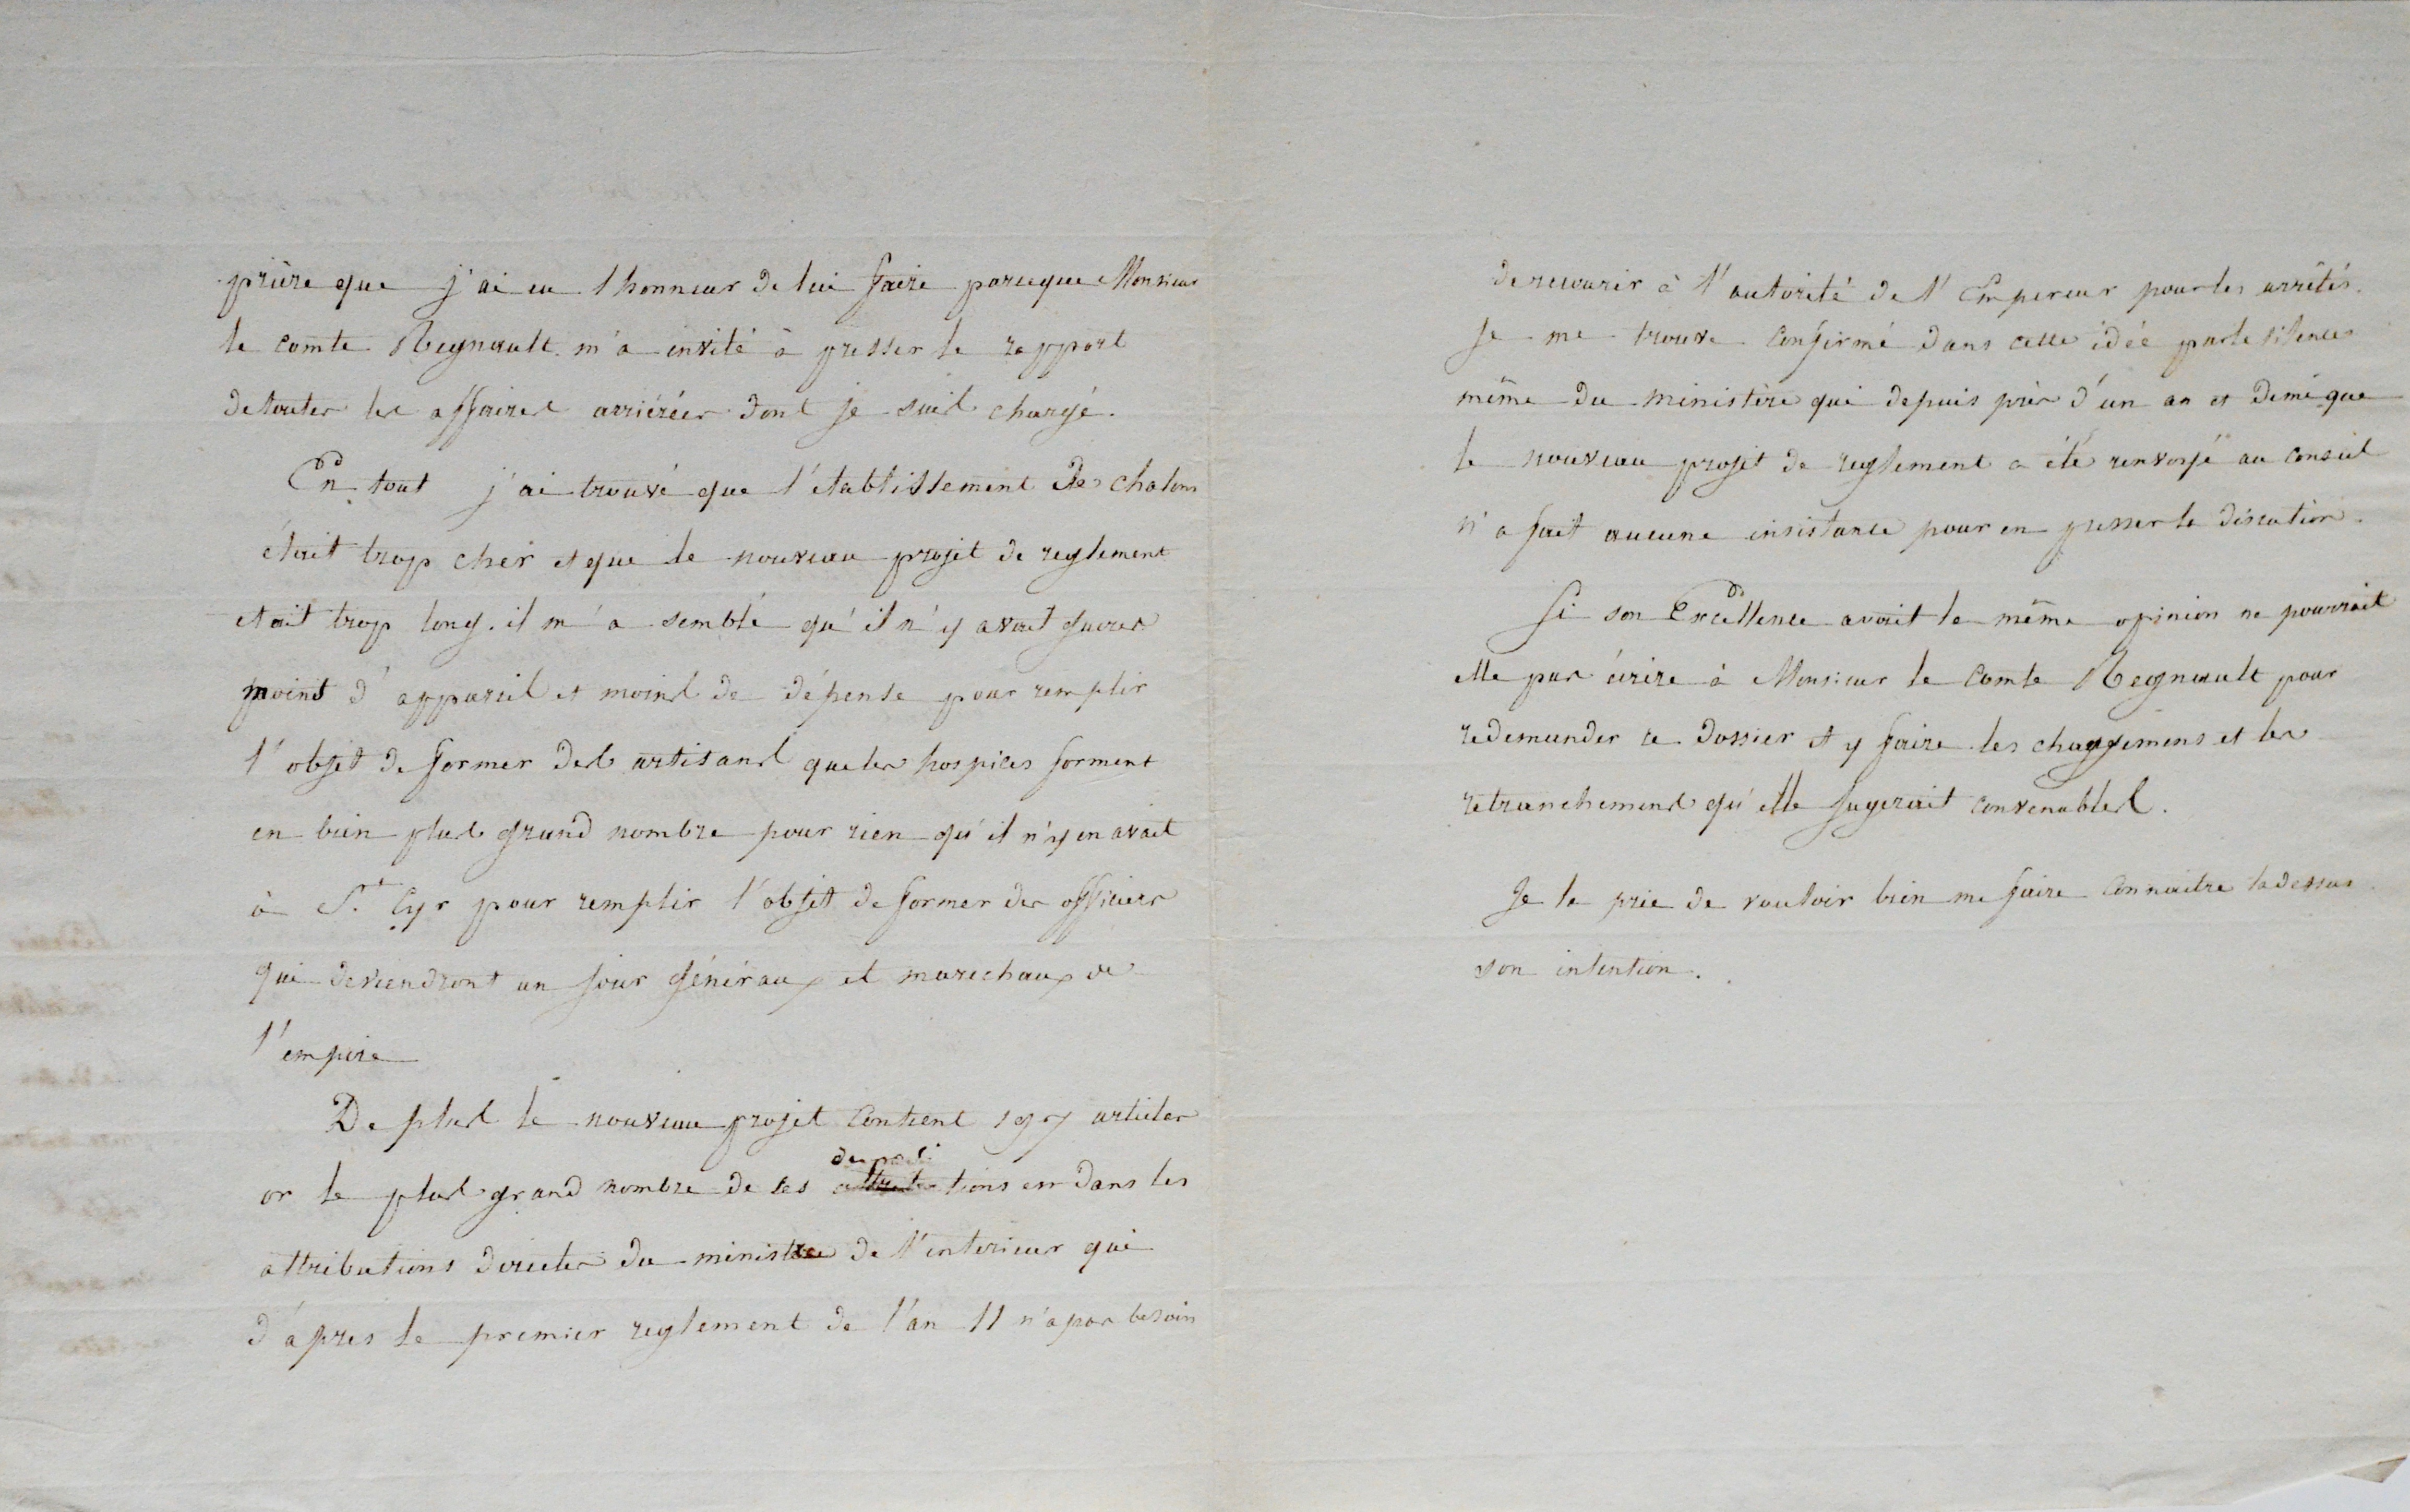 prière que j'ai eu l'honneur de lui faire parceque Monsieur
le comte Regnault m'a invité à presser le rapport
de toutes les affaires arriérées dont je suis chargé.
En tout j'ai trouvé que l'établissement de chalons
était trop cher et que le nouveau projet de reglement
etait trop long. il m'a semblé qu'il n'y avait gueres
moins d'appareil et moins de dépense pour remplir
l'objet de former des artisans que les hospices forment
en bien plus grand nombre pour rien qu'il n'y en avait
à St. Cyr pour remplir l'objet de former des officiers
qui deviendront un jour généraux et marechaux de
l'empire
De plus le nouveau projet contient 197 articles
or le plus grand nombre de ses
dispositions est dans les
attributions directes du ministre de l'interieur qui
d'après le premier reglement de l'an 11 n'a pas besoin
de recourir à l'autorité de l'Empereur pour les arrêtés.
Je me trouve confirmé dans cette idée par le silence
même du ministère qui depuis près d'un an et demi que
le nouveau projet de reglement a été renvoyé au conseil
n'a fait aucune insistance pour en presser la discution.
Si son Excellence avait la même opinion ne pourrait
elle pas écrire à Monsieur le comte Regnault pour
redemander ce dossier et y faire les changemens et les
retranchemens qu'elle jugerait convenables.
Je la prie de vouloir bien me faire connaitre ladessus
son intention.